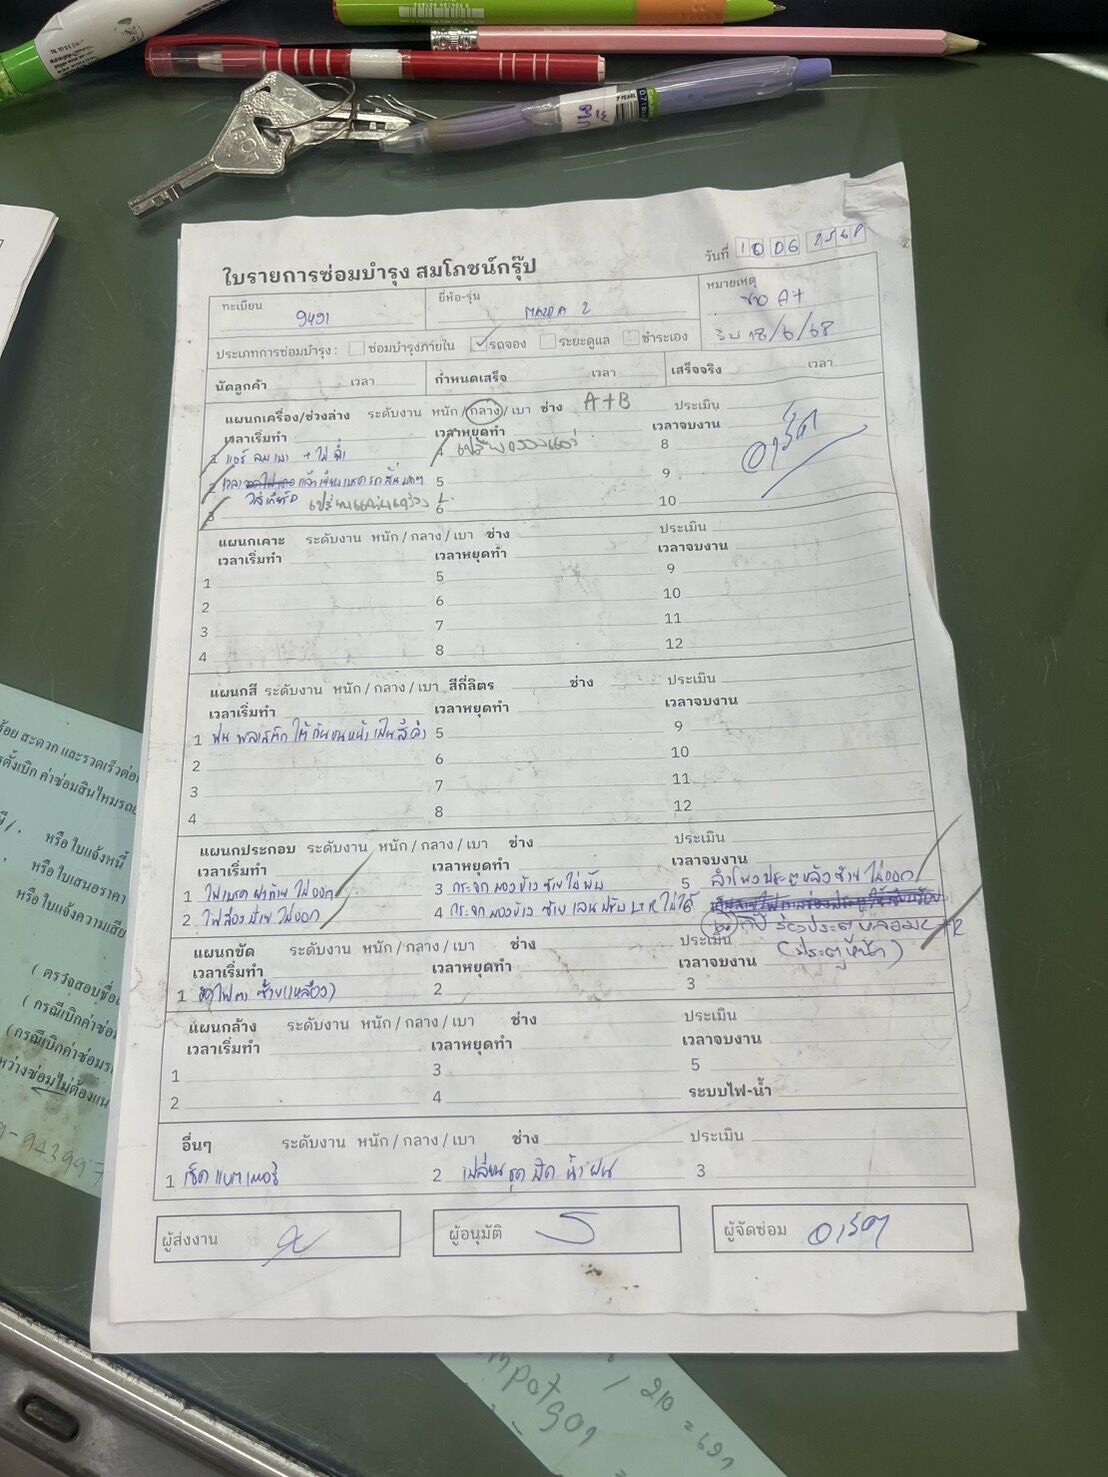 ใบรายการซ่อมบำรุง สมโภชน์กรุ๊ป
วันที่ 10 06 2568
ทะเบียน 9491
ยี่ห้อ-รุ่น MAZDA 2
หมายเหตุ
ช่าง A+
รับ 18/6/68
ประเภทการซ่อมบำรุง: ซ่อมบำรุงภายใน รถจอง ระยะดูแล ชำระเอง
นัดลูกค้า เวลา กำหนดเสร็จ เวลา เสร็จจริง เวลา
แผนกเครื่อง/ช่วงล่าง ระดับงาน หนัก / กลาง / เบา ช่าง A+B ประเมิน
เวลาเริ่มทำ เวลาหยุดทำ เวลาจบงาน
1 แอร์ ลมเบา + ไม่ฉ่ำ 4 8
2 5 9
ใส่เกียร์ D
3 6 10
แผนกเคาะ ระดับงาน หนัก / กลาง / เบา ช่าง ประเมิน
เวลาเริ่มทำ เวลาหยุดทำ เวลาจบงาน
1 5 9
2 6 10
3 7 11
4 8 12
แผนกสี ระดับงาน หนัก / กลาง / เบา สีกี่ลิตร ช่าง ประเมิน
เวลาเริ่มทำ เวลาหยุดทำ เวลาจบงาน
1 พ่น พลาสติก ใต้ กันชนหน้า เป็นสีดำ 5 9
2 6 10
3 7 11
4 8 12
แผนกประกอบ ระดับงาน หนัก / กลาง / เบา ช่าง ประเมิน
เวลาเริ่มทำ เวลาหยุดทำ เวลาจบงาน
1 ไฟเบรค ฝาท้าย ไม่ออก 3 กระจก มองข้าง ซ้าย ไม่พับ 5 ลำโพงประตูหลังซ้าย ไม่ออก
2 ไฟส่องป้าย ไม่ออก 4 กระจก มองข้าง ซ้าย เลนปรับ L+R ไม่ได้
(ประตูหน้า)
แผนกขัด ระดับงาน หนัก / กลาง / เบา ช่าง ประเมิน
เวลาเริ่มทำ เวลาหยุดทำ เวลาจบงาน
1 ขัดไฟตา ซ้าย (เหลือง) 2 3
แผนกล้าง ระดับงาน หนัก / กลาง / เบา ช่าง ประเมิน
เวลาเริ่มทำ เวลาหยุดทำ เวลาจบงาน
1 3 5
2 4 ระบบไฟ-น้ำ
อื่นๆ ระดับงาน หนัก / กลาง / เบา ช่าง ประเมิน
1 เช็ค แบตเตอรี่ 2 เปลี่ยน ชุด ฉีด น้ำฝน 3
ผู้ส่งงาน ผู้อนุมัติ ผู้จัดซ่อม
สะดวก และรวดเร็ว
หรือ ใบแจ้งหนี้
หรือ ใบเสนอราคา
หรือ ใบแจ้งความ